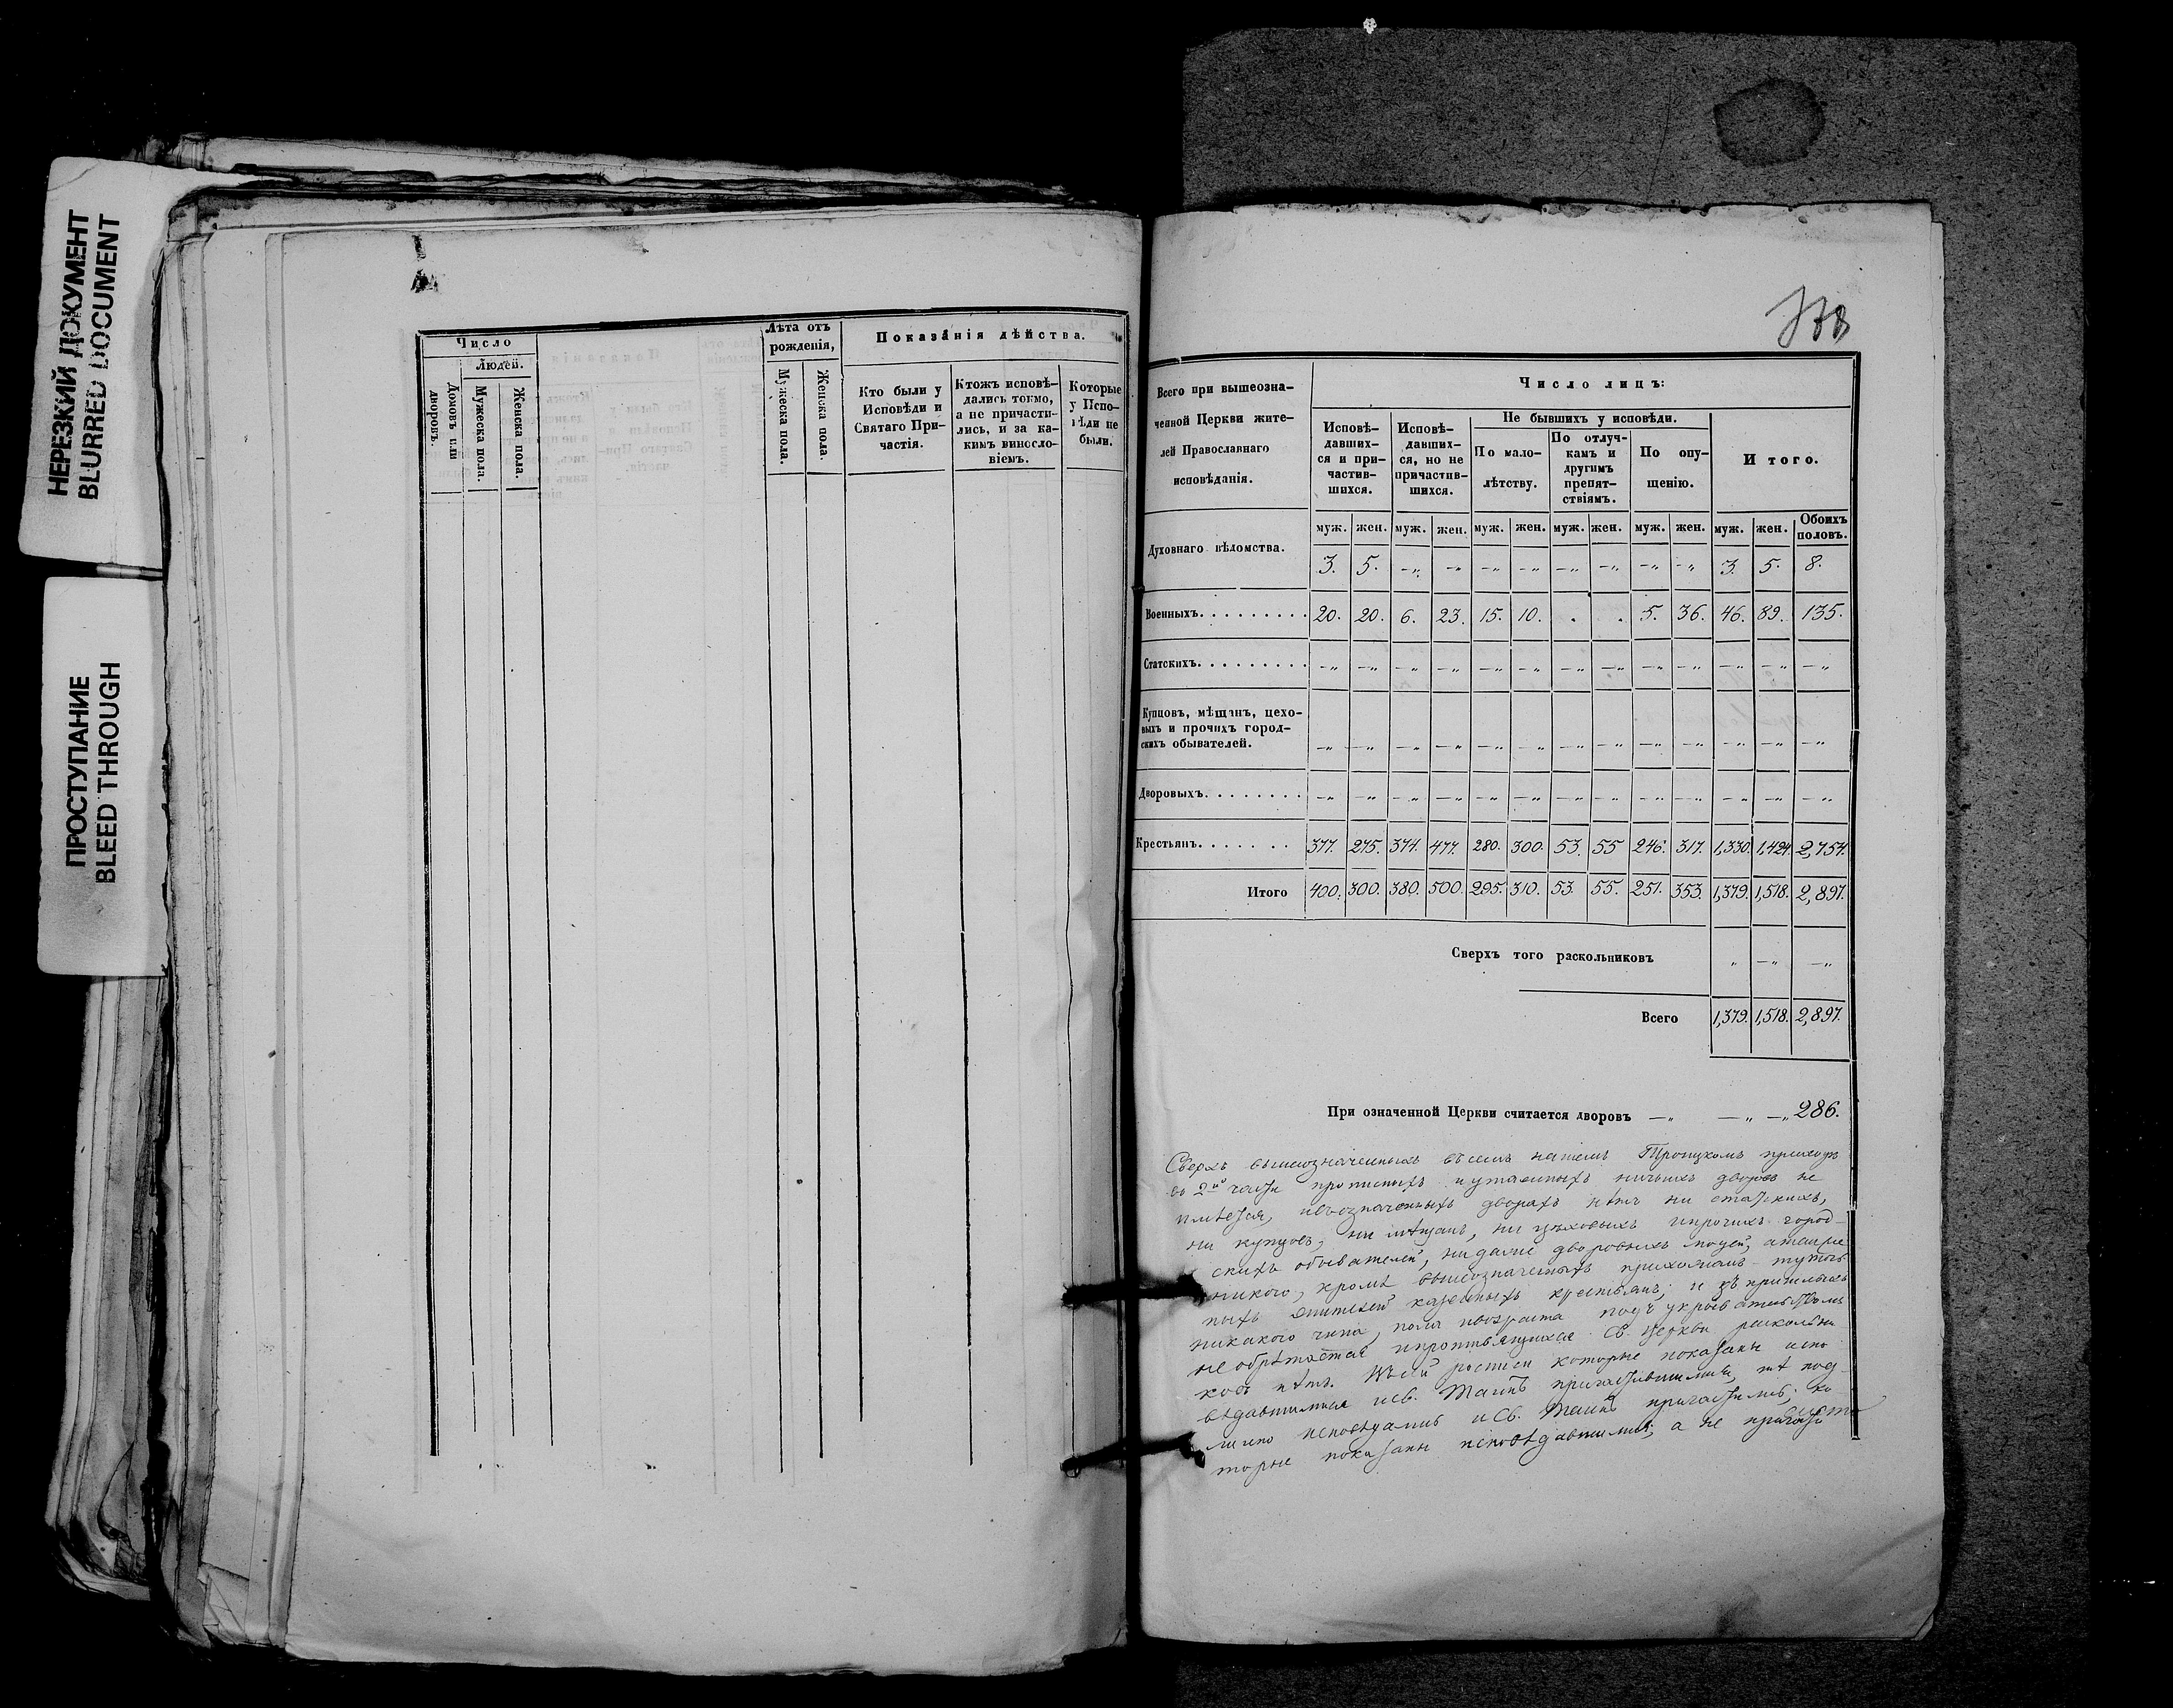 НЕРЕЗКИЙ ДОКУМЕНТ
BLURRED DOCUMENT
ПРОСТУПАНИЕ
BLEED THROUGH
Число
Людей.
Домовъ или дворовъ.
Мужеска пола.
Женска пола.
Лѣта отъ рожденія,
Мужеска пола.
Женска пола.
Показанія дѣйства.
Кто были у
Исповѣди и
Святаго При-
частія.
Ктожъ исповѣ-
дались токмо,
а не причасти-
лись, и за ка-
кимъ винosло-
віемъ.
Которые
у Испо-
вѣди не
были.
Всего при вышеозна-
ченной Церкви жите-
лей Православнаго
исповѣданія.
Число лицъ:
Исповѣ-
давших-
ся и при-
частив-
шихся.
Исповѣ-
давших-
ся, но не
причастив-
шихся.
Не бывшихъ у исповѣди.
По мало-
лѣтству.
По отлуч-
камъ и
другимъ
препят-
ствіямъ.
По опу-
щенію.
Итого.
муж. жен. муж. жен. муж. жен. муж. жен. муж. жен. муж. жен. Обоихъ половъ.
Духовнаго вѣдомства. 3. 5. -„ -„ -„ -„ -„ -„ -„ -„ 3. 5. 8.
Военныхъ. 20. 20. 6. 23. 15. 10. . . 5. 36. 46. 89. 135.
Статскихъ. -„ -„ -„ -„ -„ -„ -„ -„ -„ -„ -„ -„ -„
Купцовъ, мѣщанъ, цехо-
выхъ и прочихъ город-
скихъ обывателей. -„ -„ -„ -„ -„ -„ -„ -„ -„ -„ -„ -„ -„
Дворовыхъ. -„ -„ -„ -„ -„ -„ -„ -„ -„ -„ -„ -„ -„
Крестьянъ. 377. 275. 374. 477. 280. 300. 53. 55 246. 317. 1,330. 1,424. 2,754.
Итого 400. 300. 380. 500. 295. 310. 53. 55. 251. 353. 1,379. 1,518. 2,897.
Сверхъ того раскольниковъ „ -„ -„
Всего 1,379. 1,518. 2,897.
При означенной Церкви считается дворовъ -„ -„ -„ 286.
Сверхъ вышеозначенныхъ въ семъ нашемъ Троицкомъ приходѣ
во 2й части прописныхъ и утаенныхъ ничьихъ дворовъ не
имѣется, и въ означенныхъ дворахъ нѣтъ ни статскихъ,
ни купцовъ, ни мѣщанъ, ни цеховыхъ и прочихъ город-
скихъ обывателей, ни даже дворовыхъ людей,
никого, кромѣ вышеозначенныхъ прихожанъ
ныхъ жителей казенныхъ крестьянъ; и пришлыхъ
никакого чина, пола и возраста подъ укрывательствомъ
не обрѣтается и противящихся св. церкви раскольни
ковъ нѣтъ. Въ сей росписи которые показаны испо
вѣдавшимися и св. Таинъ причастившимися, тѣ под
линно исповѣдались и Св. Таинъ причастились; ко
торые показаны исповѣдавшимися, а не причасти